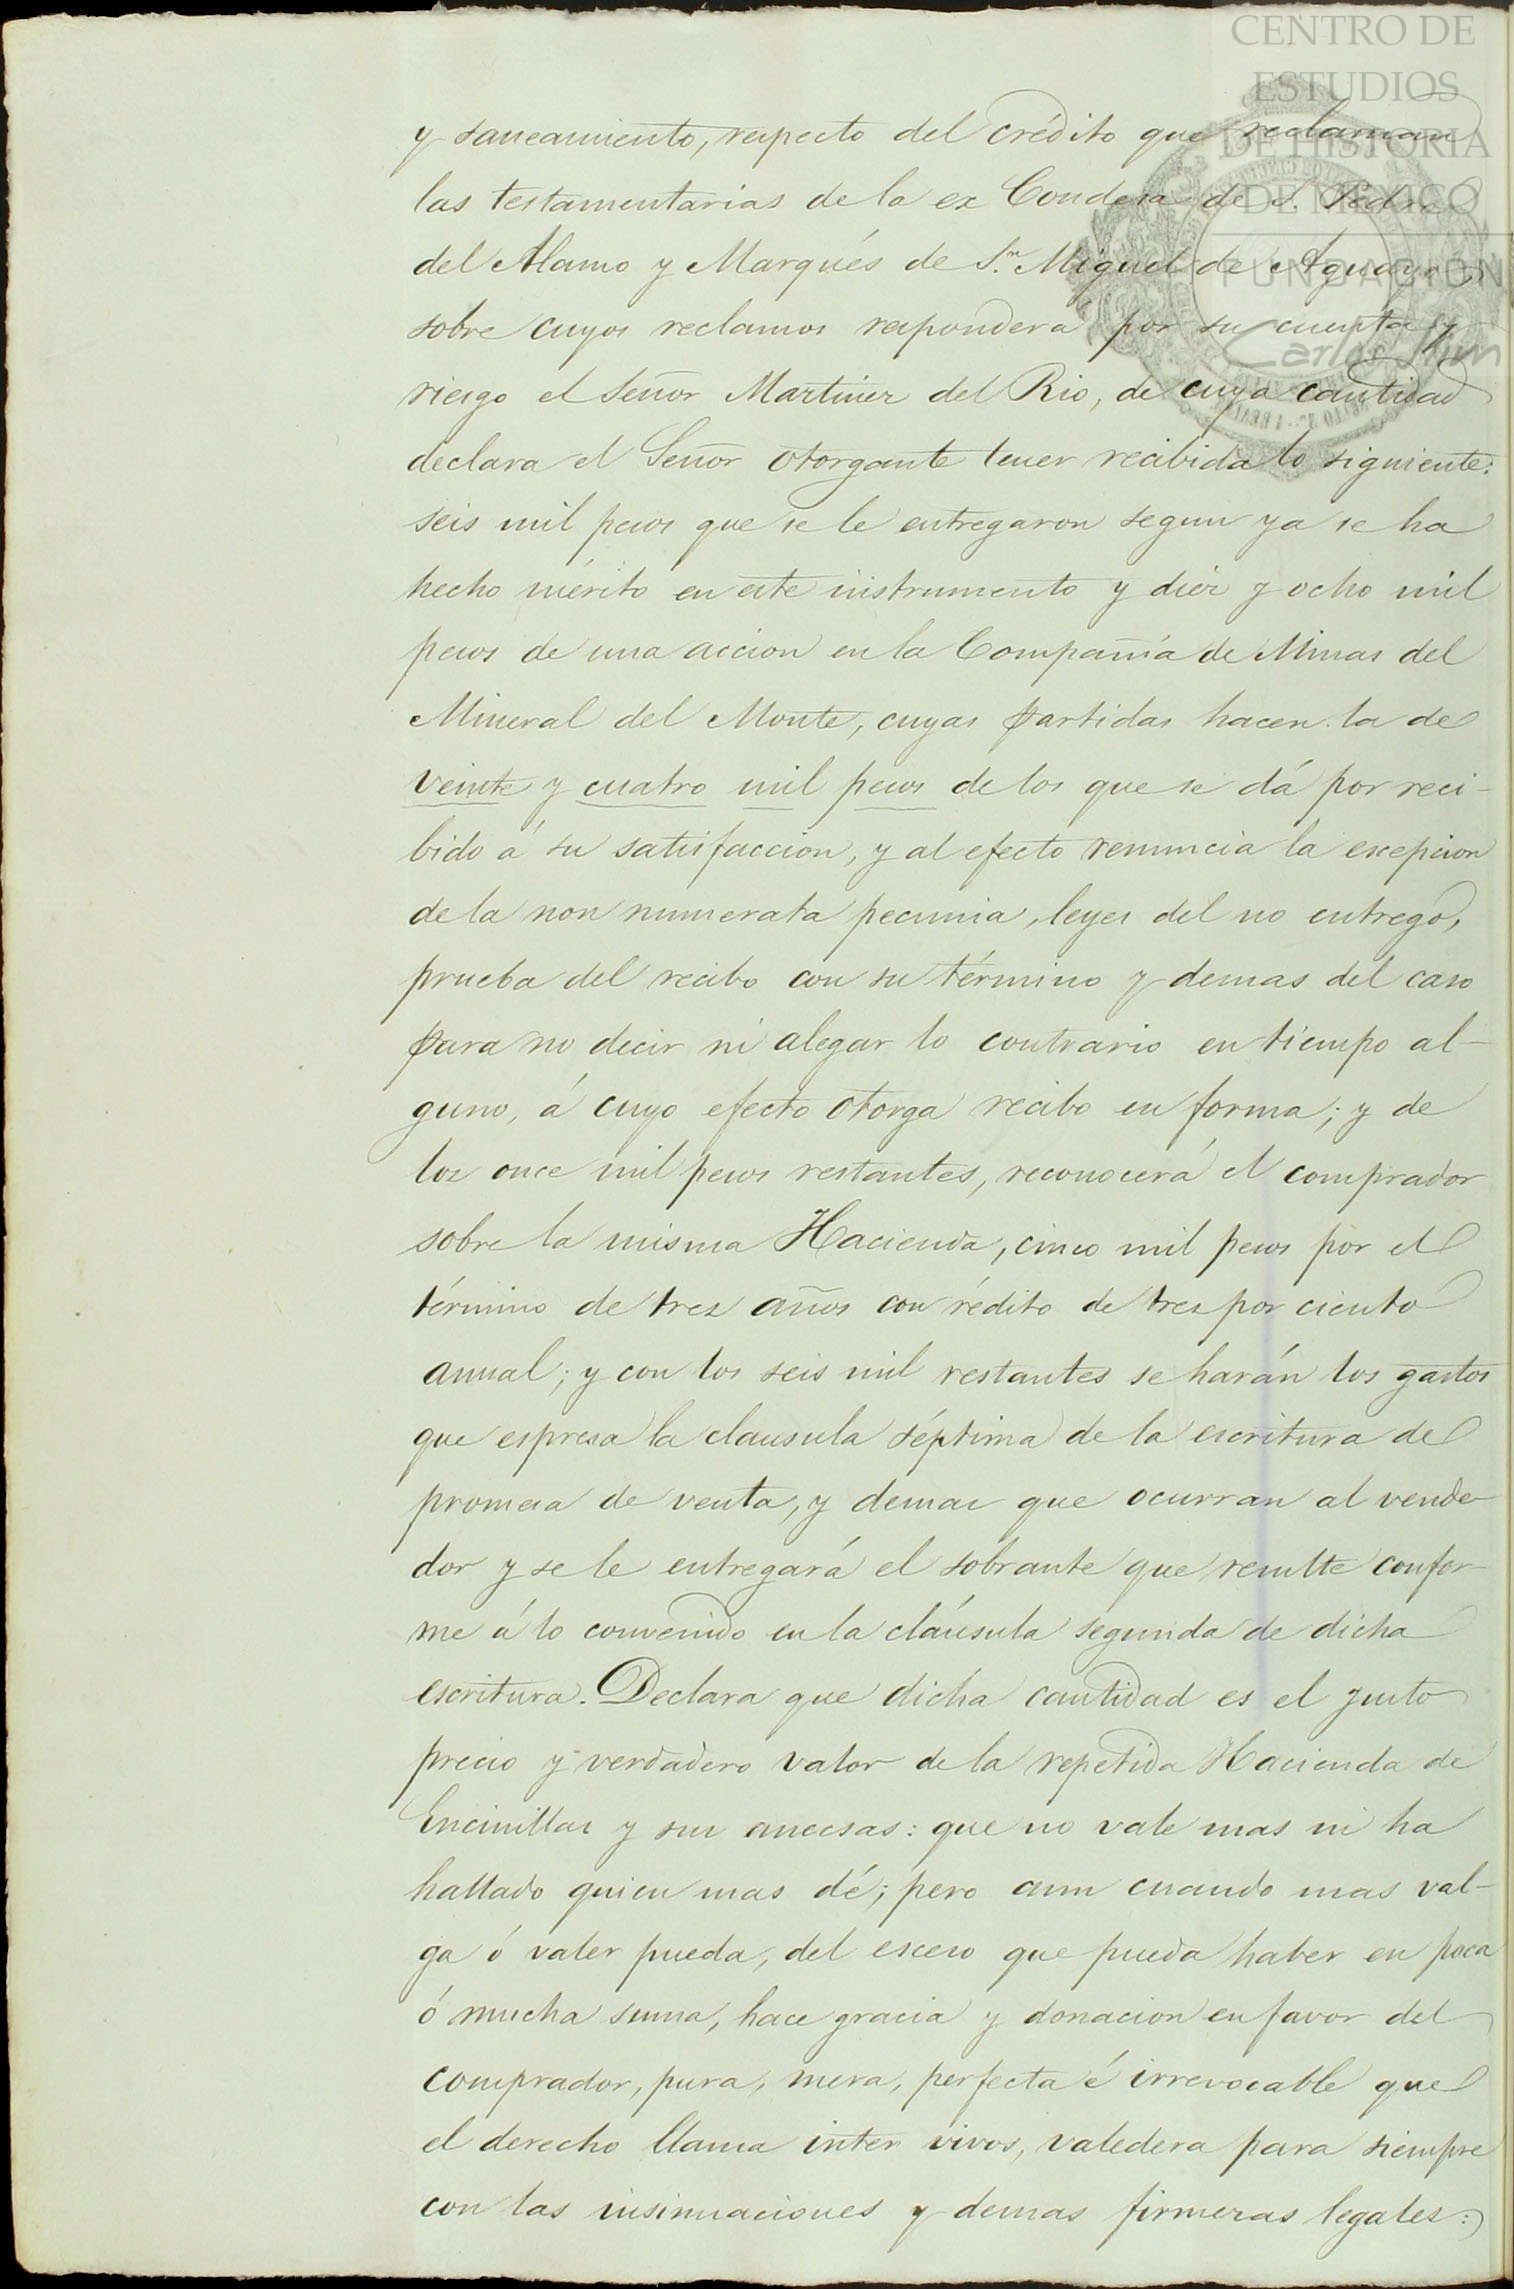 CENTRO DE
ESTUDIOS
DE HISTORIA
DE MÉXICO
FUNDACIÓN
Carlos Slim
y saneamiento, respecto del crédito que reclaman
las testamentarias de la ex Condesa de S. Pedro
del Alamo y Marqués de S.n Miguel de Aguayo,
sobre cuyos reclamos respondera por su cuenta y
riesgo el Señor Martinez del Rio, de cuya cantidad
declara el Señor otorgante tener recibida lo siguiente:
seis mil pesos que se le entregaron segun ya se ha
hecho mérito en este instrumento y diez y ocho mil
pesos de una accion en la Compañía de Minas del
Mineral del Monte, cuyas partidas hacen la de
veinte y cuatro mil pesos de los que se dá por reci-
bido á su satisfaccion, y al efecto renuncia la escepcion
de la non numerata pecunia, leyes del no entrego,
prueba del recibo con su término y demas del caso
para no decir ni alegar lo contrario en tiempo al-
guno, á cuyo efecto otorga recibo en forma; y de
los once mil pesos restantes, reconocerá el comprador
sobre la misma Hacienda, cinco mil pesos por el
término de tres años con rédito de tres por ciento
anual; y con los seis mil restantes se harán los gastos
que espresa la clausula séptima de la escritura de
promesa de venta, y demas que ocurran al vende-
dor y se le entregará el sobrante que resulte confor-
me á lo convenido en la cláusula segunda de dicha
escritura. Declara que dicha cantidad es el justo
precio y verdadero valor de la repetida Hacienda de
Encinillas y sus anecsas: que no vale mas ni ha
hallado quien mas dé; pero aun cuando mas val-
ga ó valer pueda, del esceso que pueda haber en poca
ó mucha suma, hace gracia y donacion en favor del
comprador, pura, mera, perfecta é irrevocable que
el derecho llama inter vivos, valedera para siempre
con las insinuaciones y demas firmezas legales: